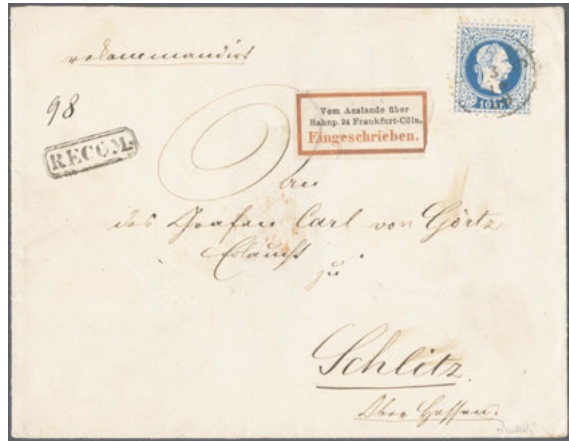 rekommandirt
98
RECOM.
Vom Auslande über
Bahnp. 24 Frankfurt-Cöln.
Eingeschrieben.
An
des Grafen Carl von Görtz
Erlaucht
zu
Schlitz
Ober Hessen.